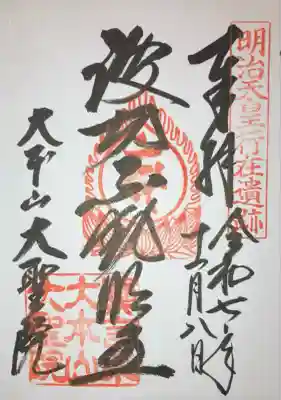 明治天皇行在遺跡
奉拝 令和七年
十一月八日
波切不動明王
大本山大聖院
大本山
大聖院